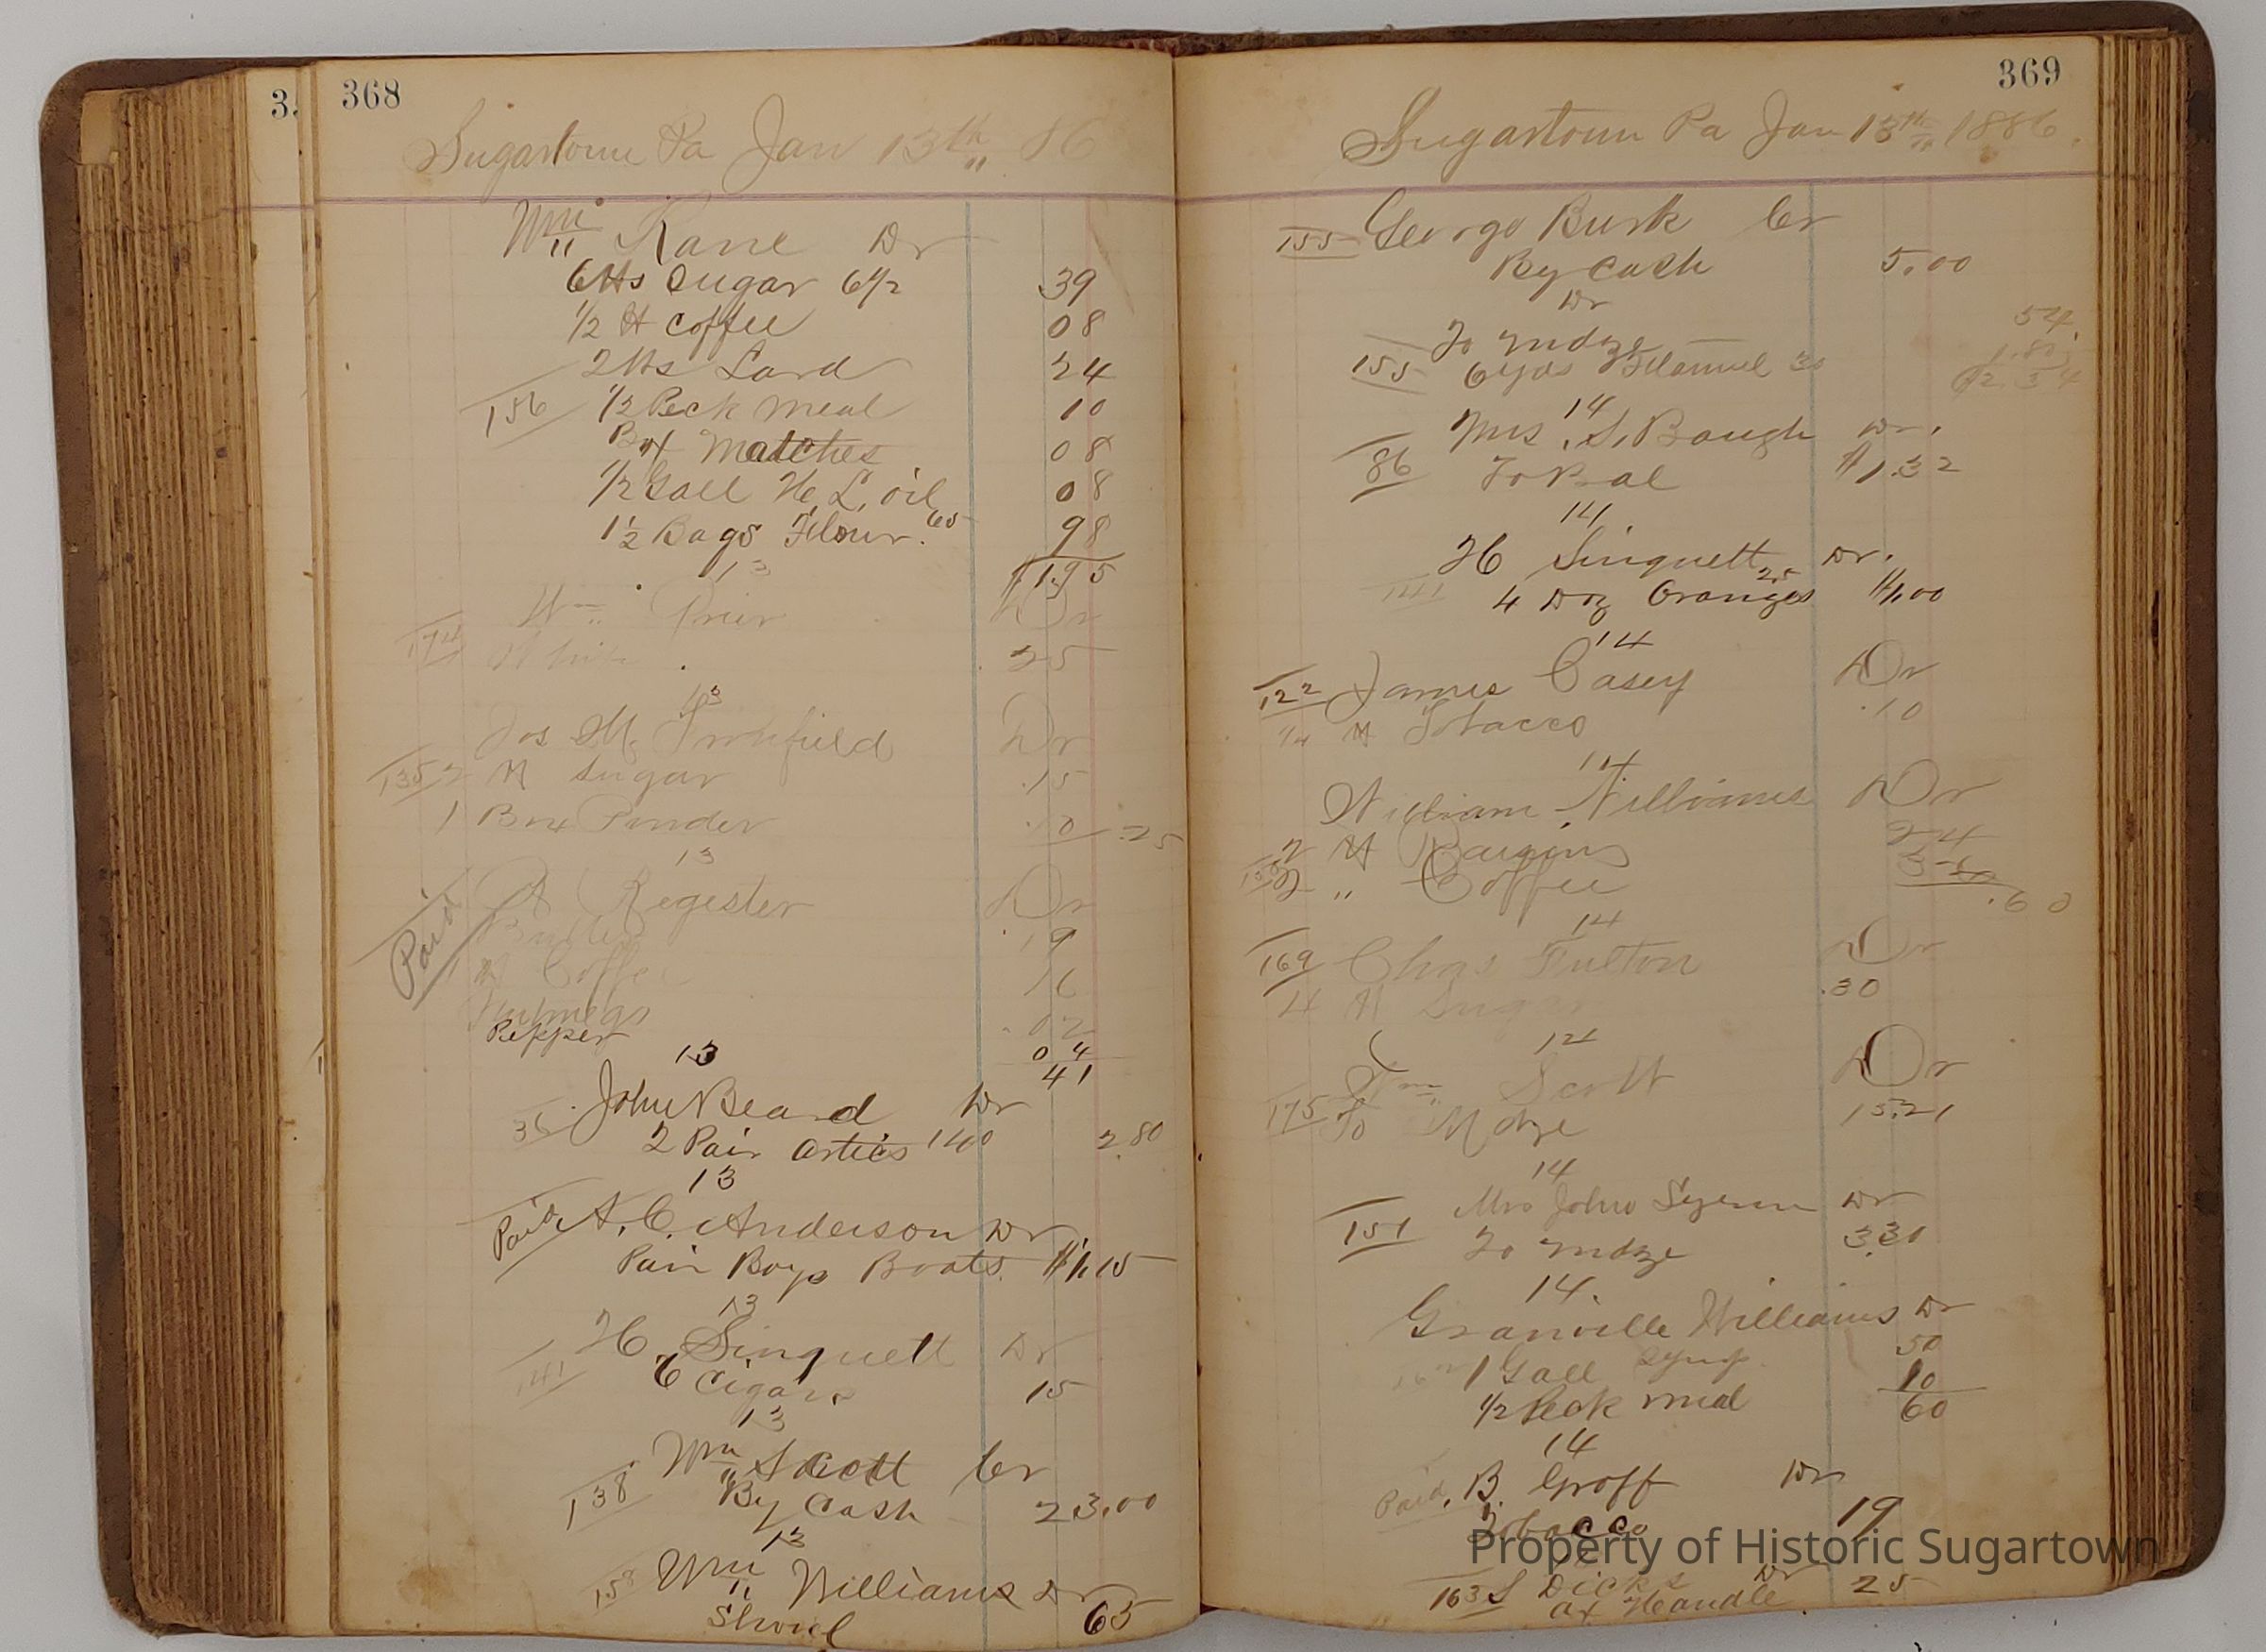 368
Sugartown Pa Jan 13th 86
Wm Kane Dr
6 lbs Sugar 6 1/2 39
1/2 lb Coffee 08
2 lbs Lard 24
156 1/2 Peck Meal 10
Box Matches 08
1/2 Gall H. L. oil 08
1 1/2 Bags Flour 65 98
$1.95
13
Wm Dr
174 25
13
Jos M. Dr
135 2 lb Sugar .15
1 Box .10 .25
13
Paid Register Dr
19
lb Coffee 16
Nutmegs .02
Pepper 04
41
13
John Beard Dr
36 2 Pair Artics 140 2.80
13
Paid A. C. Anderson Dr
Pair Boys Boots $1.15
13
H. Singuett Dr
141 6 Cigars 15
13
Wm Scott Cr
138 By Cash 23.00
13
158 Wm Williams Dr
Shovel 65
369
Sugartown Pa Jan 13th 1886.
155 George Burk Cr
By Cash 5.00
Dr
To Mdze 54
155 6 yds Flannel 30 1.80
$2.34
14
Mrs. S. Baugh Dr.
86 To Bal $1.32
14.
H Singuett Dr.
141 4 Doz Oranges 25 $1.00
14
122 James Casey Dr
1/4 lb Tobacco .10
14
William Williams Dr
2 lb 24
2 " Coffee 36 .60
14
169 Chas Fulton Dr
4 lb Sugar .30
14
Wm Scott Dr
175 To Mdze 15.21
14
Mrs John Dr
151 To Mdze 3.31
14.
Granville Williams Dr
1 Gall Syrup 50
1/2 Peck Meal 10
60
14
Paid. B. Groff Dr
Tobacco 19
163 S Dicks Dr
ax Handle 25
Property of Historic Sugartown